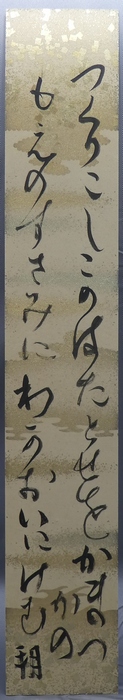 つくりこしこのはたとせをかまの
もえのすさみにわかおいにけむ